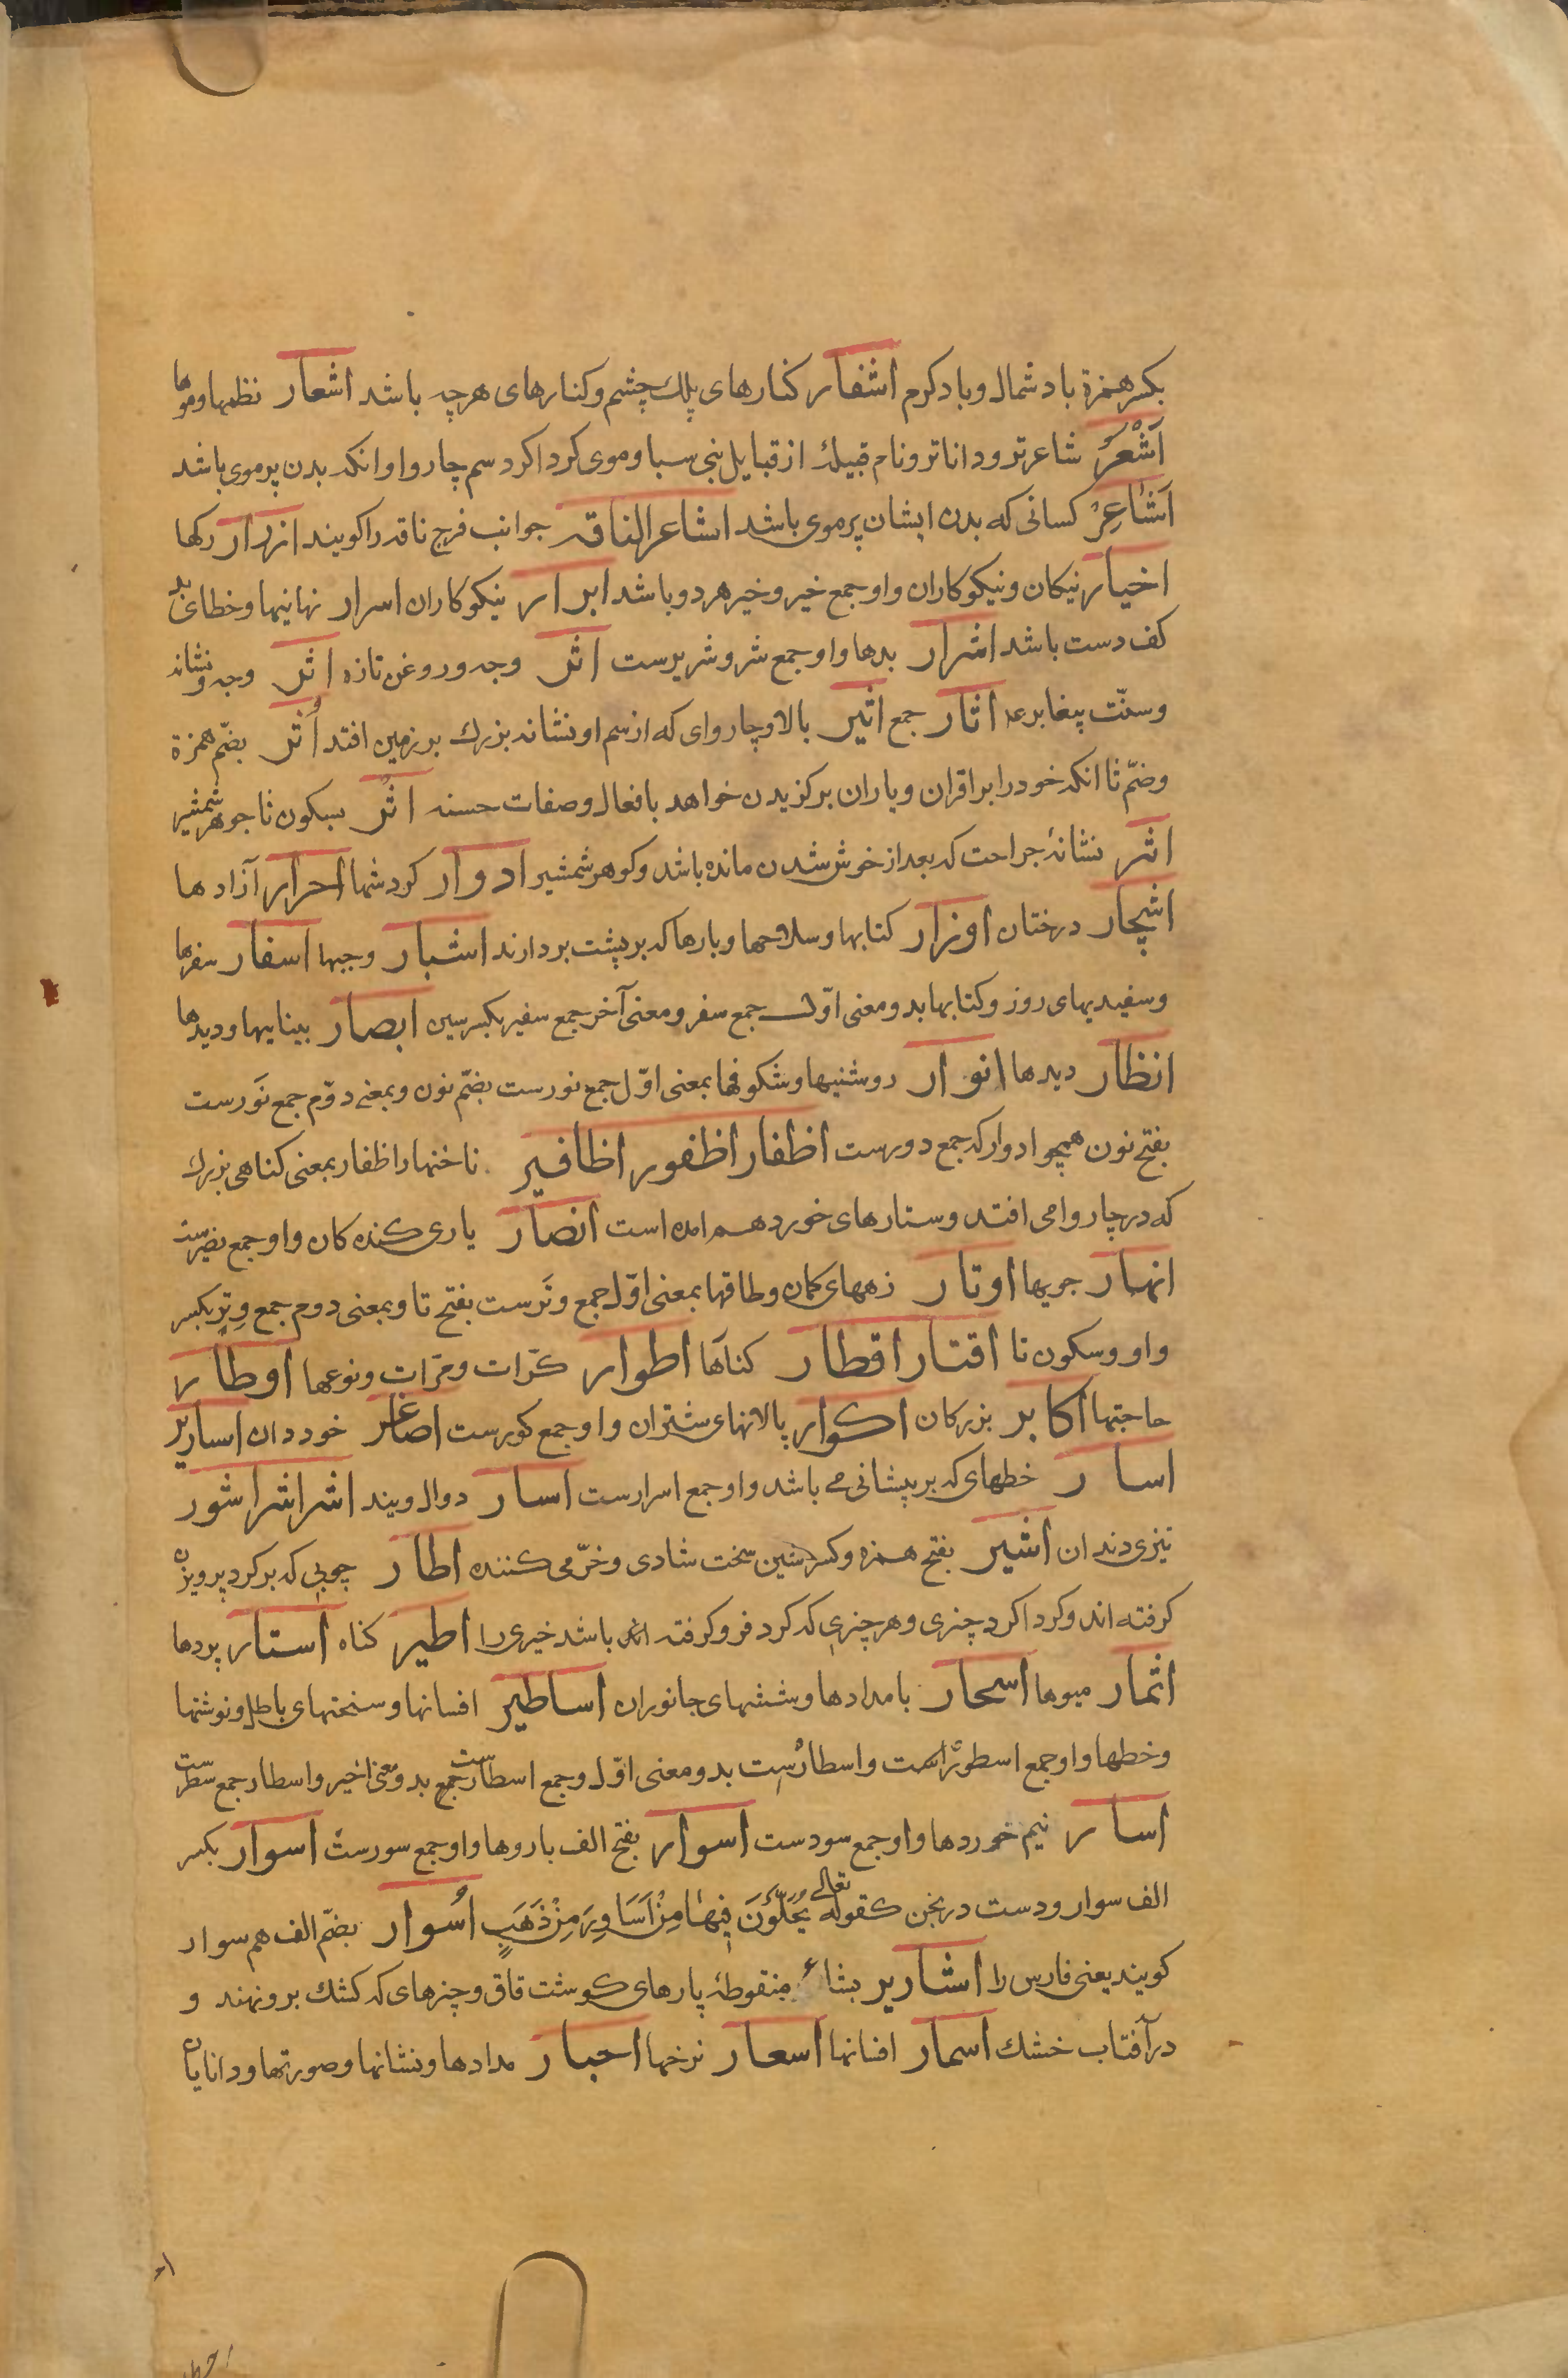 بکسر همزة باد شمال و باد کرم اشفار کنارهای پلک چشم و کنارهای هرچه باشد اشعار نظمها و موها
اَشْعَرُ شاعرتر و داناتر و نام قبیلهٔ از قبایل بنی سبا و موی کرد اکرد سم چاروا و انکه بدن پرموی باشد
اَشاعِرْ کسانی که بدن ایشان پرموی باشد اشاعر الناقه جوانب فرج ناقه را کویند ازرار رکها
اخیار نیکان و نیکوکاران و او جمع خیر و خیر هر دو باشد ابرار نیکوکاران اسرار نهانیها و خطهای
کف دست باشد اشرار بدها و او جمع شر و شریرست اثر وجه و روغن تازه اثر وجه و نشانه
و سنّت پیغابر عم اثار جمع اثیر بالا و چاروای که از سم او نشانه بزرک بر زمین افتد اُثر بضمّ همزة
و ضمّ ثا انکه خود را بر اقران و یاران برکزیدن خواهد بافعال و صفات حسنه اثر بسکون ثا جوهر شمشیر
اثر نشانهٔ جراحت که بعد از خوش شدن مانده باشد و کوهر شمشیر ادوار کردشها احرار آزادها
اشجار درختان اوزار کتابها و سلاحها و بارها که بر پشت بردارند اشبار وجبها اسفار سفرها
و سفیدیهای روز و کتابها بدو معنی اوّل جمع سفر و معنی آخر جمع سفیر بکسر سین ابصار بیناییها و دیدها
انظار دیدها انوار روشنیها و شکوفها بمعنی اوّل جمع نورست بضمّ نون و بمعنی دوّم جمع نَورست
بفتح نون همچو ادوار که جمع دورست اظفار اظفور اظافیر ناخنها را اظفار بمعنی کناهی بزرک
که در چاروا می افتد و ستارهای خورد هم امده است انصار یاری کننده کان و او جمع نصیرست
انهار جویها اوتار زههای کمان و طاقها بمعنی اوّل جمع وتَرست بفتح تا و بمعنی دوم جمع وِترِ بکسر
واو و سکون تا اقتار اقطار کنآها اطوار کرّات و مرّات و نوعها اوطار
حاجتها اکابر بزرکان اکوار پالانهای شتران و او جمع کورست اصاغر خوردان اساریر
اسار خطهای که بر پیشانی می باشد و او جمع اسرارست اسار دوال و بند اشر اشر اشور
تیزی دندان اشیر بفتح همزه و کسر شین سخت شادی و خرّمی کننده اطار چوبی که بر کرد پرویزن
کرفته اند و کرد اکرد چیزی و هر چیزی که کرد فرو کرفته باشد خیری را اطیر کناه استار پردها
اثمار میوها اسحار بامدادها و ششهای جانوران اساطیر افسانها و سخنهای باطل و نوشتها
و خطها و او جمع اسطورَاست و اسطارُست بدو معنی اوّل و جمع اسطارست جمع بدو معنی اخیر و اسطار جمع سطرست
اسار نیم خوردها و او جمع سودست اسوار بفتح الف باروها و او جمع سورست اسوار بکسر
الف سوار و دست درنجن کقوله تعالی یُحَلَّوْنَ فِیهَا مِنْ اَسَاوِرَ مِنْ ذَهَبٍ اُسوار بضمّ الف هم سوار
کویند یعنی فارس را اشاریر بشاء منقوطهٔ پارهای کوشت قاق و چیزهای که کشک برو نهند و
در آفتاب خشک اسمار افسانها اسعار نرخها احبار مدادها و نشانها و صورتها و دانایان